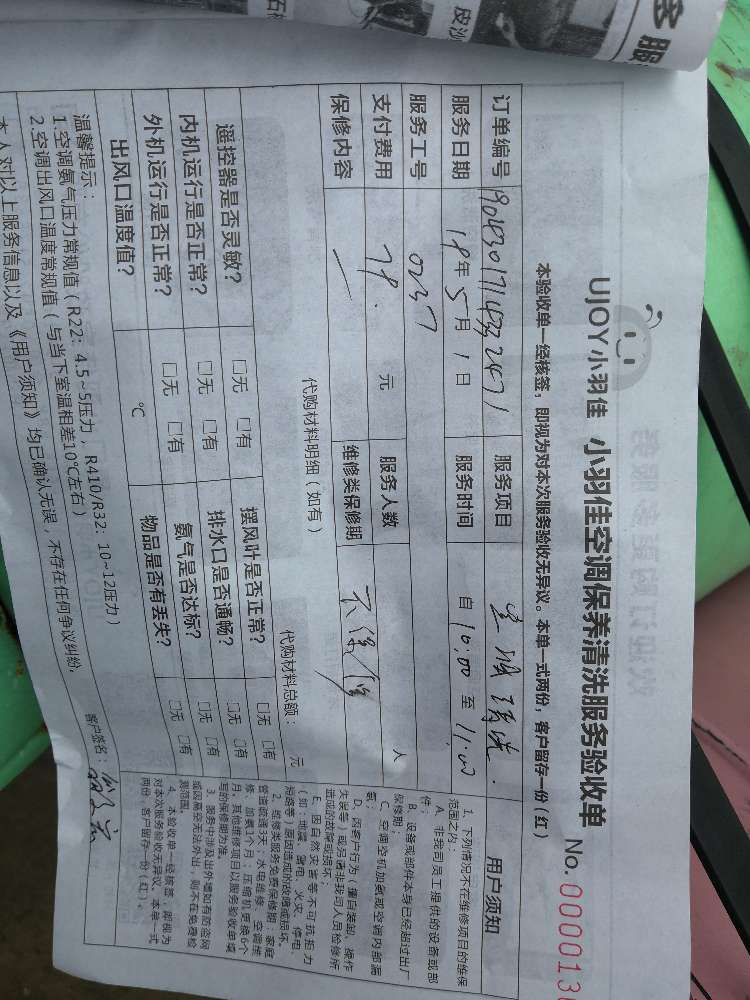 多 服
皮沙
石材
UJOY小羽佳 小羽佳空调保养清洗服务验收单
No. 0000013
本验收单一经核签，即视为对本次服务验收无异议。本单一式两份，客户留存一份（红）
订单编号 服务项目
服务日期 18年5月1日 服务时间 自10:00至11:00
服务工号 0237
支付费用 78. 元 服务人数 人
保修内容 一 维修类保修期
代购材料明细（如有） 代购材料总额： 元
遥控器是否灵敏？ □无 □有 摆风叶是否正常？ □无 □有
内机运行是否正常？ □无 □有 排水口是否通畅？ □无 □有
外机运行是否正常？ □无 □有 氨气是否达标？ □无 □有
出风口温度值？ ℃ 物品是否有丢失？ □无 □有
温馨提示：
1.空调氨气压力常规值（R22：4.5~5压力，R410/R32：10~12压力）
2.空调出风口温度常规值（与当下室温相差10℃左右）
本人对以上服务信息以及《用户须知》均已确认无误，不存在任何争议纠纷。
客户签名：
用户须知
1、下列情况不在维修项目的维保
范围之内：
A、非我司员工提供的设备或部
件；
B、设备或部件本身已经超过出厂
保修期；
C、空调空机加氨或空调内部漏
氨；
D、因客户行为（擅自装卸、操作
失误等）或另请非我司人员检修所
造成的故障或损坏；
E、因自然灾害等不可抗拒力
（如：地震、雷电、火灾、停电、
短路等）原因造成的故障或损坏。
2、维修类服务免费保修期：家庭
管道疏通3天；水电维修、空调维
修、加氨1个月；压缩机更换6个
月；其他维修项目以服务验收单填
写的保修期为准。
3、服务中涉及出外墙如有防盗网
或因高空无法外出，则不在免费检
测范围。
4、本验收单一经核签，即视为
对本次服务验收无异议。本单一式
两份，客户留存一份（红）。